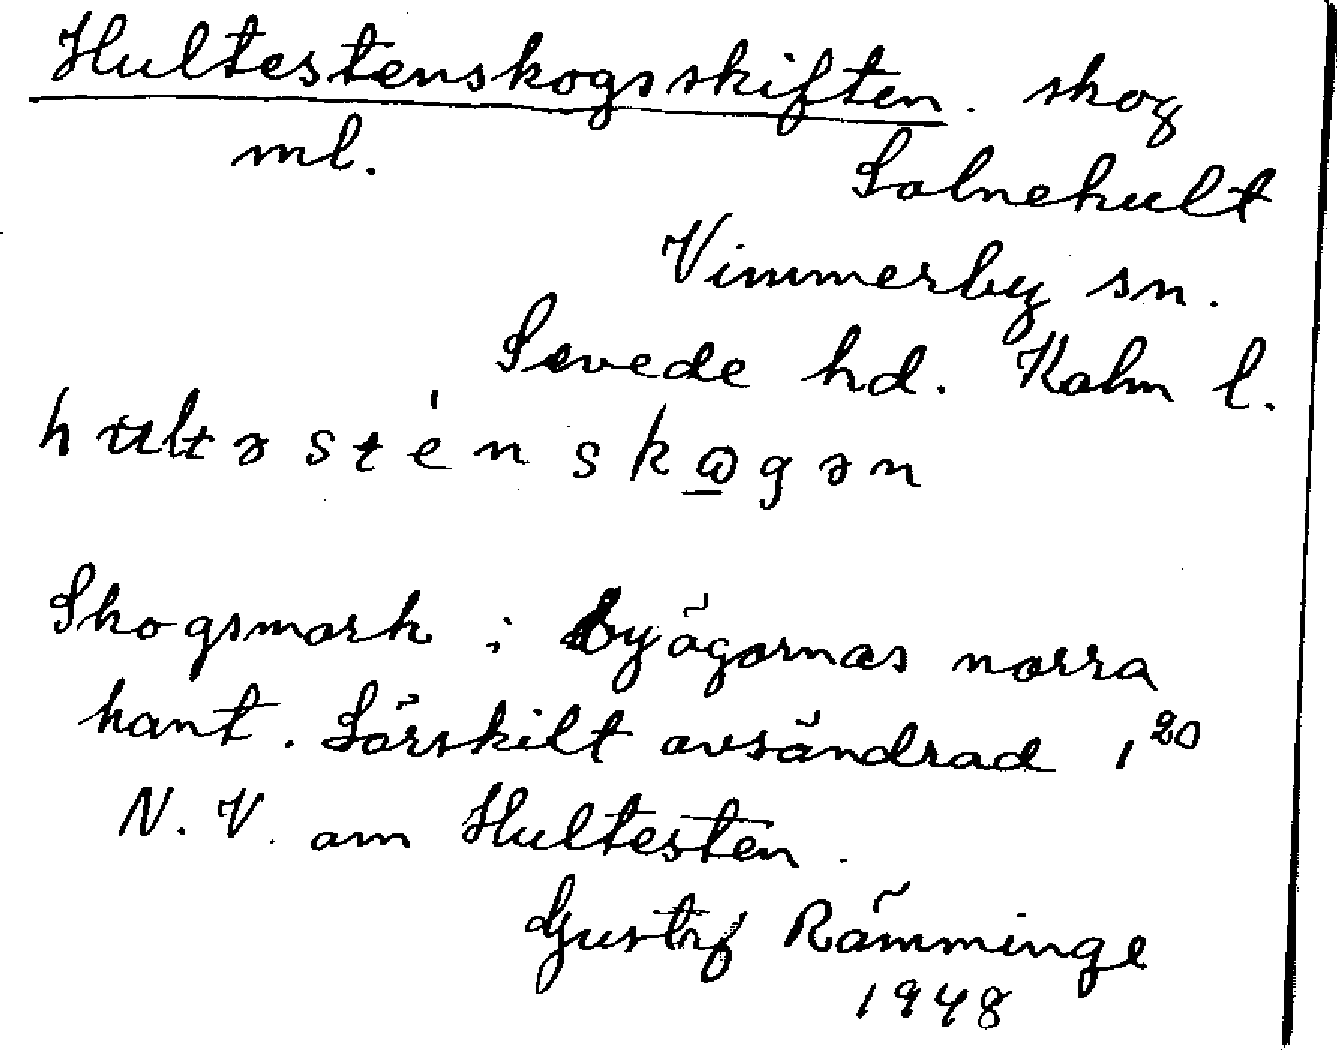 Hultestenskogsskiften. skog
ml. Solnehult
Vimmerby sn.
Sevede hd. Kalm l.
hultəsténskωgən
Skogsmark i byägornas norra
kant. Särskilt avsöndrad, 20
N. V. om Hultesten.
Gustaf Rämminge
1948